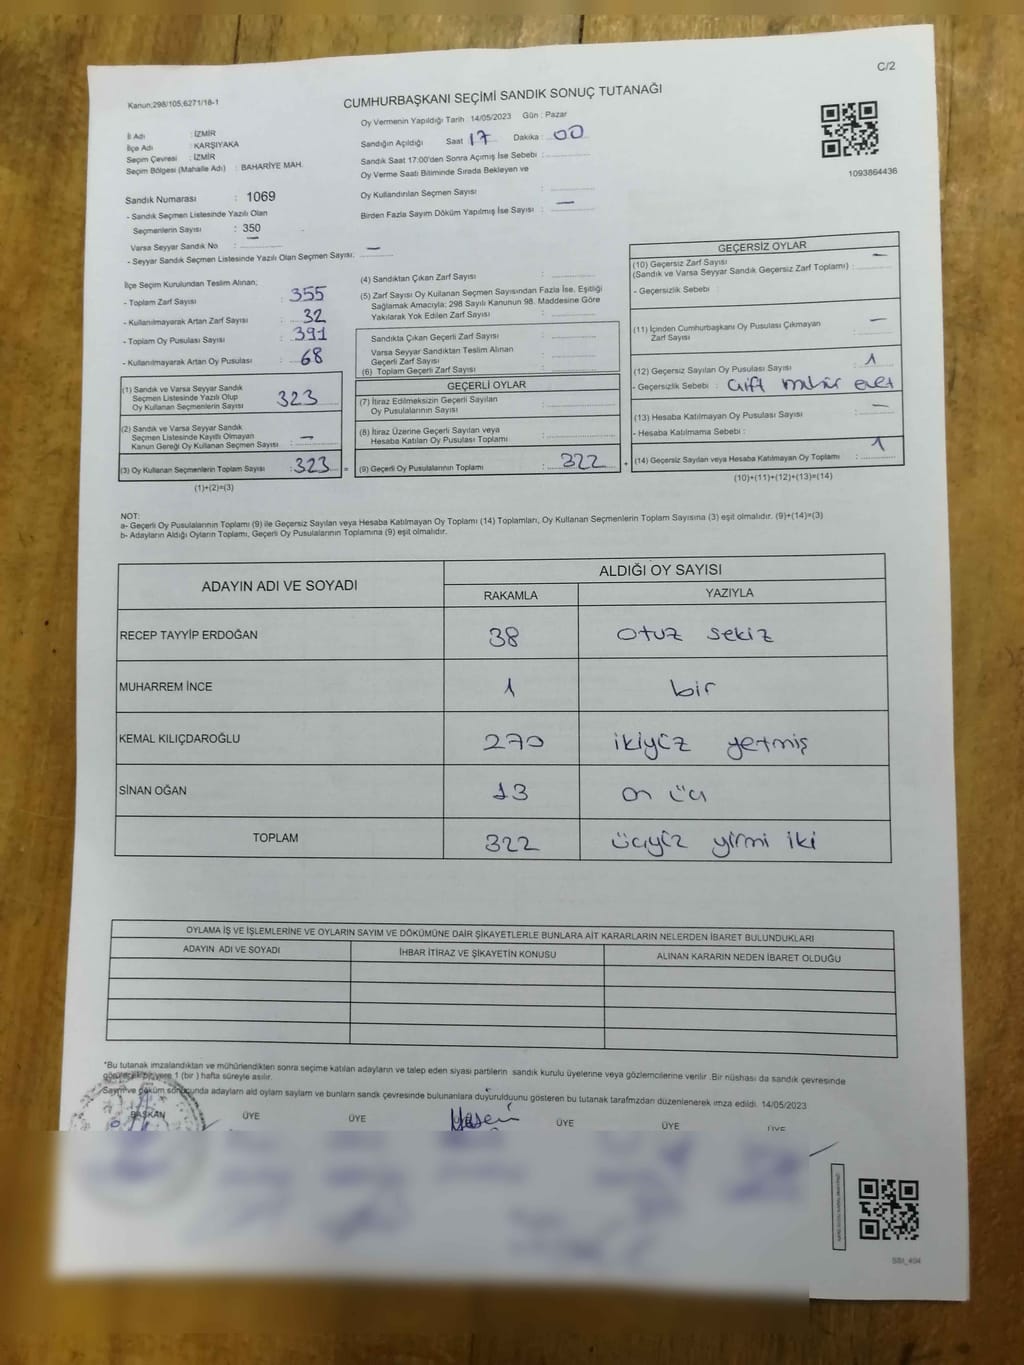 C/2
Kanun;298/105;6271/18-1
CUMHURBAŞKANI SEÇİMİ SANDIK SONUÇ TUTANAĞI
İl Adı : İZMİR
İlçe Adı : KARŞIYAKA
Seçim Çevresi : İZMİR
Seçim Bölgesi (Mahalle Adı) : BAHARİYE MAH.
Oy Vermenin Yapıldığı Tarih 14/05/2023 Gün : Pazar
Sandığın Açıldığı Saat 17 Dakika : 00
Sandık Saat 17:00'den Sonra Açımış İse Sebebi :
Oy Verme Saati Bitiminde Sırada Bekleyen ve
Oy Kullandırılan Seçmen Sayısı :
Birden Fazla Sayım Döküm Yapılmış İse Sayısı : —
1093864436
Sandık Numarası : 1069
- Sandık Seçmen Listesinde Yazılı Olan
Seçmenlerin Sayısı : 350
Varsa Seyyar Sandık No : —
- Seyyar Sandık Seçmen Listesinde Yazılı Olan Seçmen Sayısı: —
İlçe Seçim Kurulundan Teslim Alınan;
- Toplam Zarf Sayısı : 355
- Kullanılmayarak Artan Zarf Sayısı : 32
- Toplam Oy Pusulası Sayısı : 391
- Kullanılmayarak Artan Oy Pusulası : 68
(1) Sandık ve Varsa Seyyar Sandık
Seçmen Listesinde Yazılı Olup
Oy Kullanan Seçmenlerin Sayısı 323
(2) Sandık ve Varsa Seyyar Sandık
Seçmen Listesinde Kayıtlı Olmayan
Kanun Gereği Oy Kullanan Seçmen Sayısı : —
(3) Oy Kullanan Seçmenlerin Toplam Sayısı : 323 =
(1)+(2)=(3)
(4) Sandıktan Çıkan Zarf Sayısı :
(5) Zarf Sayısı Oy Kullanan Seçmen Sayısından Fazla İse, Eşitliği
Sağlamak Amacıyla; 298 Sayılı Kanunun 98. Maddesine Göre
Yakılarak Yok Edilen Zarf Sayısı :
Sandıkta Çıkan Geçerli Zarf Sayısı :
Varsa Seyyar Sandıktan Teslim Alınan
Geçerli Zarf Sayısı :
(6) Toplam Geçerli Zarf Sayısı :
GEÇERLİ OYLAR
(7) İtiraz Edilmeksizin Geçerli Sayılan
Oy Pusulalarının Sayısı :
(8) İtiraz Üzerine Geçerli Sayılan veya
Hesaba Katılan Oy Pusulası Toplamı :
(9) Geçerli Oy Pusulalarının Toplamı : 322 +
GEÇERSİZ OYLAR
(10) Geçersiz Zarf Sayısı
(Sandık ve Varsa Seyyar Sandık Geçersiz Zarf Toplamı) : —
- Geçersizlik Sebebi :
(11) İçinden Cumhurbaşkanı Oy Pusulası Çıkmayan
Zarf Sayısı : —
(12) Geçersiz Sayılan Oy Pusulası Sayısı : 1
- Geçersizlik Sebebi : Çift mühür evet
(13) Hesaba Katılmayan Oy Pusulası Sayısı : —
- Hesaba Katılmama Sebebi :
(14) Geçersiz Sayılan veya Hesaba Katılmayan Oy Toplamı : 1
(10)+(11)+(12)+(13)=(14)
NOT:
a- Geçerli Oy Pusulalarının Toplamı (9) ile Geçersiz Sayılan veya Hesaba Katılmayan Oy Toplamı (14) Toplamları, Oy Kullanan Seçmenlerin Toplam Sayısına (3) eşit olmalıdır. (9)+(14)=(3)
b- Adayların Aldığı Oyların Toplamı, Geçerli Oy Pusulalarının Toplamına (9) eşit olmalıdır.
ADAYIN ADI VE SOYADI
ALDIĞI OY SAYISI
RAKAMLA YAZIYLA
RECEP TAYYİP ERDOĞAN 38 otuz sekiz
MUHARREM İNCE 1 bir
KEMAL KILIÇDAROĞLU 270 ikiyüz yetmiş
SİNAN OĞAN 13 on üç
TOPLAM 322 üçyüz yirmi iki
OYLAMA İŞ VE İŞLEMLERİNE VE OYLARIN SAYIM VE DÖKÜMÜNE DAİR ŞİKAYETLERLE BUNLARA AİT KARARLARIN NELERDEN İBARET BULUNDUKLARI
ADAYIN ADI VE SOYADI İHBAR İTİRAZ VE ŞİKAYETİN KONUSU ALINAN KARARIN NEDEN İBARET OLDUĞU
*Bu tutanak imzalandıktan ve mühürlendikten sonra seçime katılan adayların ve talep eden siyasi partilerin sandık kurulu üyelerine veya gözlemcilerine verilir .Bir nüshası da sandık çevresinde
görülecek bir yere 1 (bir ) hafta süreyle asılır.
Sayım ve döküm sonucunda adayların ald oylam saylam ve bunların sandk çevresinde bulunanlara duyurulduunu gösteren bu tutanak tarafmzdan düzenlenerek imza edildi. 14/05/2023
BAŞKAN ÜYE ÜYE ÜYE ÜYE ÜYE